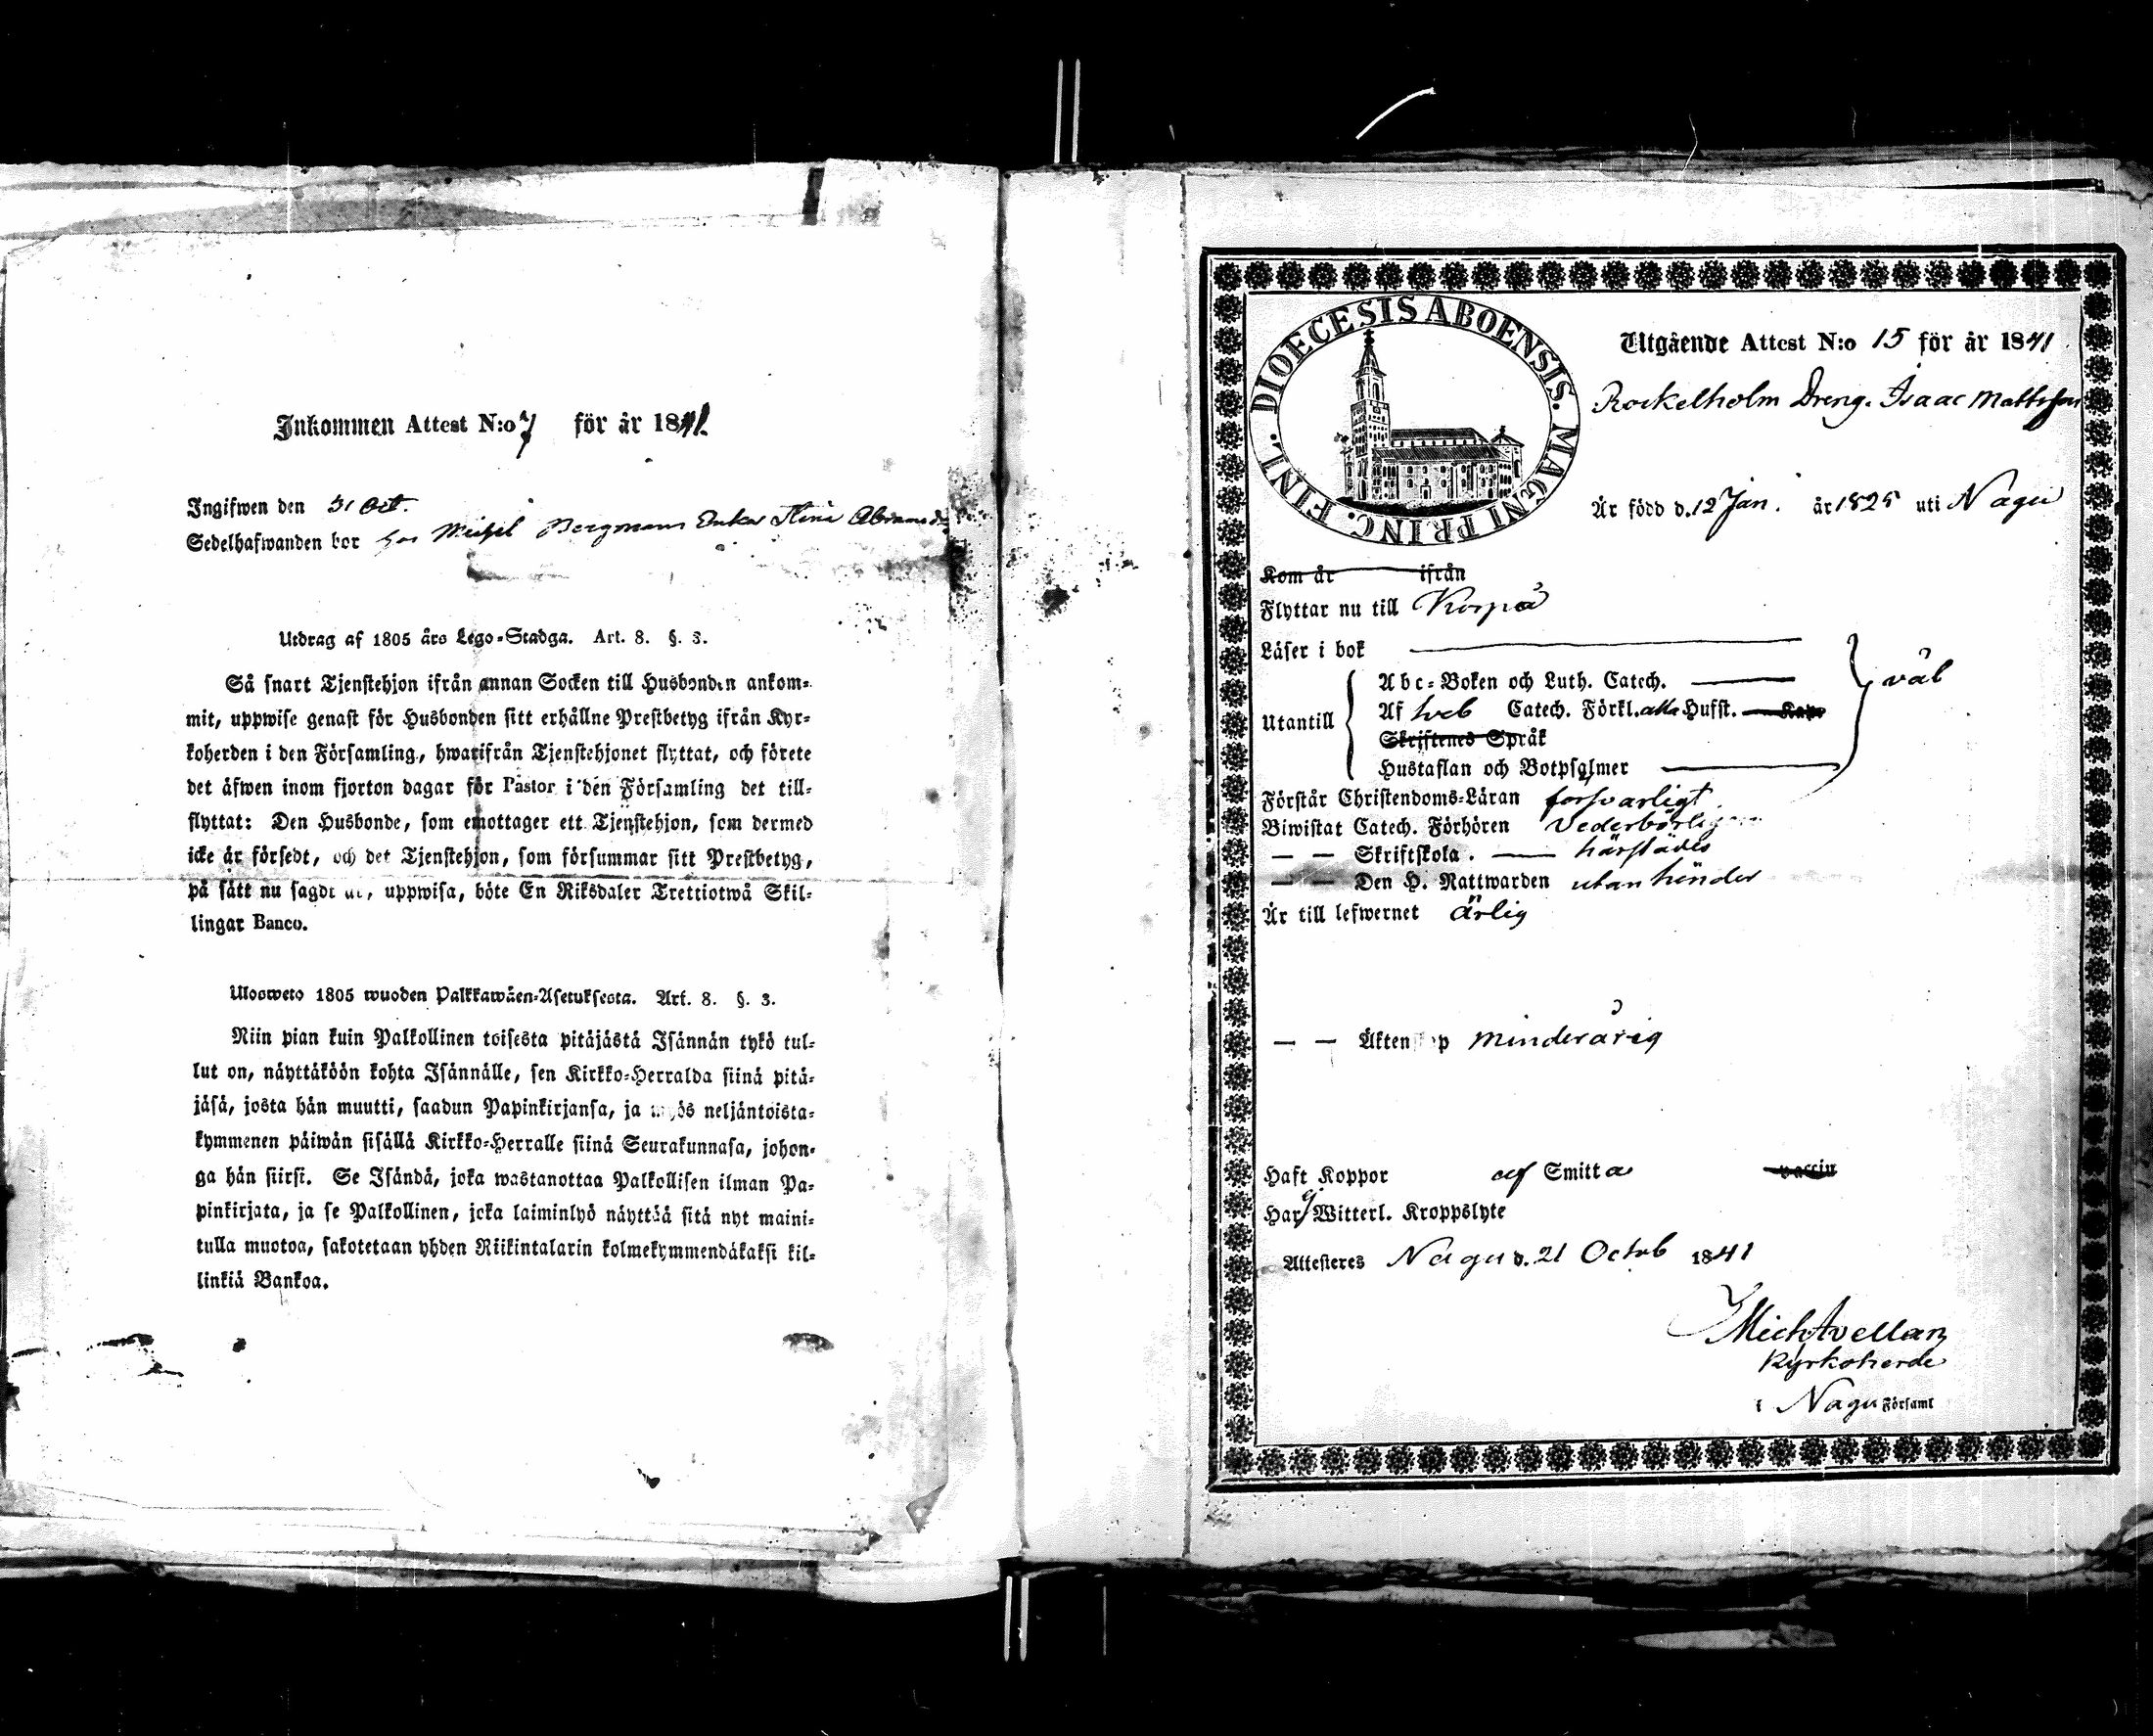 Inkommen Attest N:o 7 för år 1841
Ingifwen den 31 Oct.
Sedelhafwanden bor hos Michel Bergmans Enka
Utdrag af 1805 års Lego-Stadga. Art. 8. §. 3.
Så snart Tjenstehjon ifrån annan Socken till Husbonden ankom-
mit, uppwise genast för Husbonden sitt erhållne Prestbetyg ifrån Kyr-
koherden i den Församling, hwarifrån Tjenstehjonet flyttat, och förete
det äfwen inom fjorton dagar för Pastor i den Församling det till-
flyttat: Den Husbonde, som emottager ett Tjenstehjon, som dermed
icke är försedt, och det Tjenstehjon, som försummar sitt Prestbetyg,
på sätt nu sagdt är, uppwisa, böte En Riksdaler Trettiotwå Skil-
lingar Banco.
Ulosweto 1805 wuoden Palkkawäen-Asetuksesta. Art. 8. §. 3.
Niin pian kuin Palkollinen toisesta pitäjästä Isännän tykö tul-
lut on, näyttäköön kohta Isännälle, sen Kirkko-Herralda siinä pitä-
jäsä, josta hän muutti, saadun Papinkirjansa, ja myös neljäntoista-
kymmenen päiwän sisällä Kirkko-Herralle siinä Seurakunnasa, johon-
ga hän siirsi. Se Isändä, joka wastanottaa Palkollisen ilman Pa-
pinkirjata, ja se Palkollinen, joka laiminlyö näyttää sitä nyt maini-
tulla muotoa, sakotetaan yhden Riikintalarin kolmekymmendäkaksi kil-
linkiä Bankoa.
DIOECESIS ABOENSIS. MAGNI PRINC. FINL.
Utgående Attest N:o 15 för år 1841
Rockelholm Dreng. Isaac Mattsson
Är född d. 12 Jan. år 1825 uti Nagu
Kom år ifrån
Flyttar nu till Korpo
Läser i bok
väl
Utantill
Abc-Boken och Luth. Catech.
Af Sveb Catech. Förkl. alla Hufst. Kap.
Skriftenes Språk
Hustaflan och Botpsalmer
Förstår Christendoms-Läran försvarligt
Biwistat Catech. Förhören Vederbörligen
— — Skriftskola. härstädes
— — Den H. Nattwarden utan hinder
Är till lefwernet ärlig
— — Äktenskap minderårig
Haft Koppor af Smitta vaccin
Har ej Witterl. Kroppslyte
Attesteres Nagu d. 21 Octob 1841
Mich Avellan
Kyrkoherde
i Nagu Församl